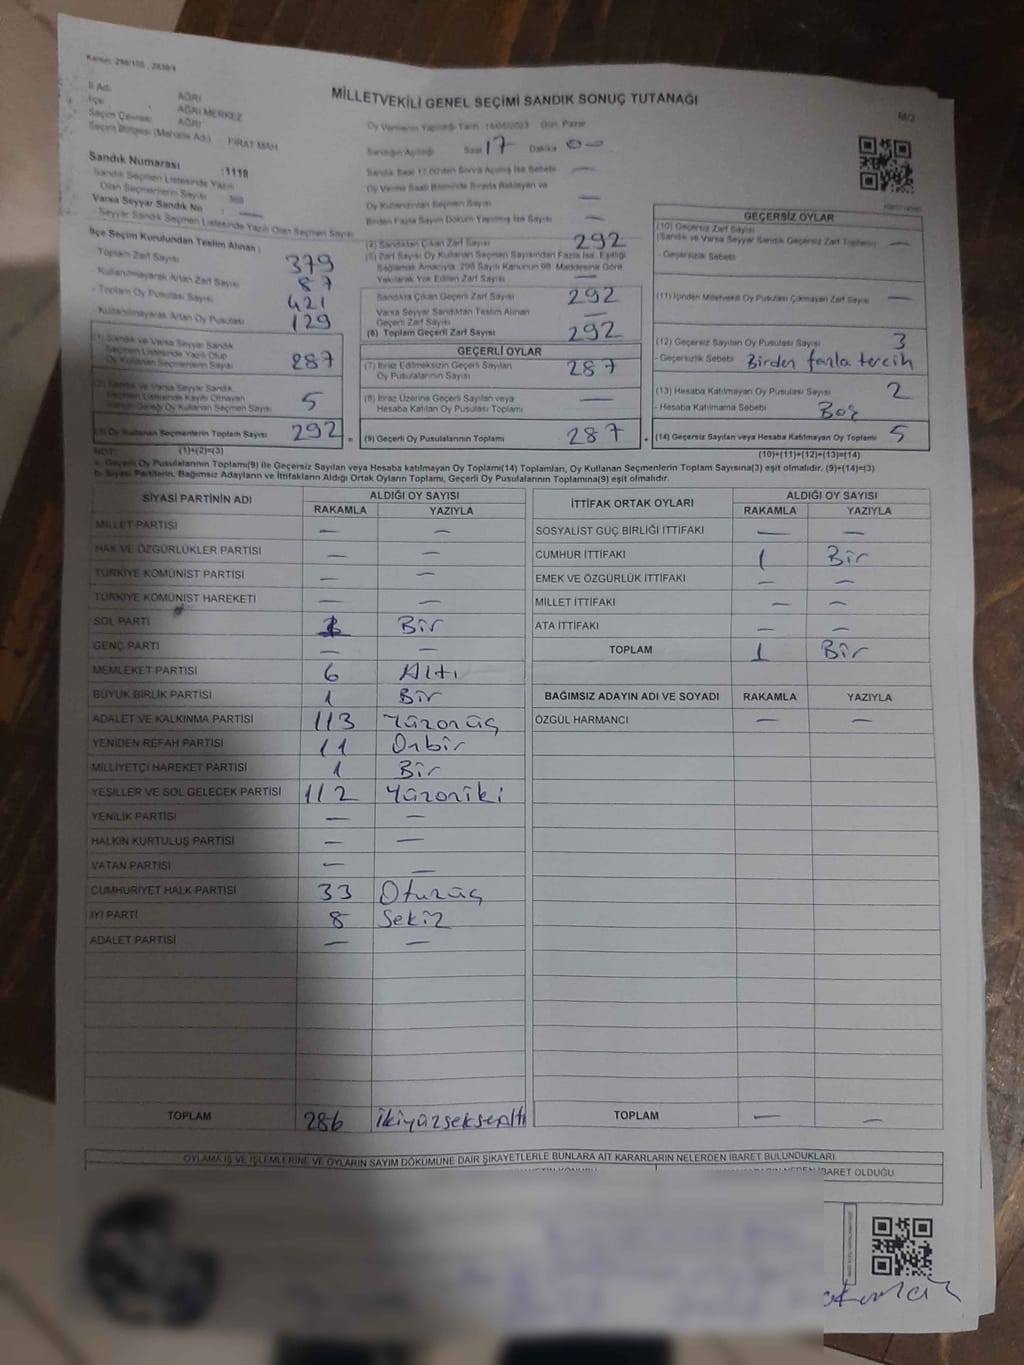 Kanun: 298/105 , 2839/4
İl Adı AĞRI
İlçe AĞRI MERKEZ
Seçim Çevresi AĞRI
Seçim Bölgesi (Mahalle Adı) FIRAT MAH
Sandık Numarası :1118
Sandık Seçmen Listesinde Yazılı
Olan Seçmenlerin Sayısı
Varsa Seyyar Sandık No
Seyyar Sandık Seçmen Listesinde Yazılı Olan Seçmen Sayısı
İlçe Seçim Kurulundan Teslim Alınan :
- Toplam Zarf Sayısı 379
- Kullanılmayarak Artan Zarf Sayısı 87
- Toplam Oy Pusulası Sayısı 421
- Kullanılmayarak Artan Oy Pusulası 129
(1) Sandık ve Varsa Seyyar Sandık
Seçmen Listesinde Yazılı Olup
Oy Kullanan Seçmenlerin Sayısı 287
(2) Sandık ve Varsa Seyyar Sandık
Seçmen Listesinde Kaydı Olmayan
Kanun Gereği Oy Kullanan Seçmen Sayısı 5
(3) Oy Kullanan Seçmenlerin Toplam Sayısı 292 =
MİLLETVEKİLİ GENEL SEÇİMİ SANDIK SONUÇ TUTANAĞI
Oy Vermenin Yapıldığı Tarih: 14/05/2023 Gün: Pazar
Sandığın Açıldığı Saat 17 Dakika 0 —
Sandık Saat 17.00'den Sonra Açılmış İse Sebebi —
Oy Verme Saati Bitiminde Sırada Bekleyen ve
Oy Kullandırılan Seçmen Sayısı —
Birden Fazla Sayım Döküm Yapılmış İse Sayısı —
(4) Sandıktan Çıkan Zarf Sayısı 292
(5) Zarf Sayısı Oy Kullanan Seçmen Sayısından Fazla İse, Eşitliği
Sağlamak Amacıyla, 298 Sayılı Kanunun 98. Maddesine Göre
Yakılarak Yok Edilen Zarf Sayısı —
Sandıkta Çıkan Geçerli Zarf Sayısı 292
Varsa Seyyar Sandıktan Teslim Alınan
Geçerli Zarf Sayısı —
(6) Toplam Geçerli Zarf Sayısı 292
GEÇERLİ OYLAR
(7) İtiraz Edilmeksizin Geçerli Sayılan
Oy Pusulalarının Sayısı 287
(8) İtiraz Üzerine Geçerli Sayılan veya
Hesaba Katılan Oy Pusulası Toplamı —
(9) Geçerli Oy Pusulalarının Toplamı 287 +
GEÇERSİZ OYLAR
(10) Geçersiz Zarf Sayısı
(Sandık ve Varsa Seyyar Sandık Geçersiz Zarf Toplamı) —
- Geçersizlik Sebebi
(11) İçinden Milletvekili Oy Pusulası Çıkmayan Zarf Sayısı —
(12) Geçersiz Sayılan Oy Pusulası Sayısı 3
- Geçersizlik Sebebi Birden fazla tercih
(13) Hesaba Katılmayan Oy Pusulası Sayısı 2
- Hesaba Katılmama Sebebi Boş
(14) Geçersiz Sayılan veya Hesaba Katılmayan Oy Toplamı 5
NOT: (1)+(2)=(3) (10)+(11)+(12)+(13)=(14)
a- Geçerli Oy Pusulalarının Toplamı(9) ile Geçersiz Sayılan veya Hesaba katılmayan Oy Toplamı(14) Toplamları, Oy Kullanan Seçmenlerin Toplam Sayısına(3) eşit olmalıdır. (9)+(14)=(3)
b- Siyasi Partilerin, Bağımsız Adayların ve İttifakların Aldığı Ortak Oyların Toplamı, Geçerli Oy Pusulalarının Toplamına(9) eşit olmalıdır.
SİYASİ PARTİNİN ADI ALDIĞI OY SAYISI
RAKAMLA YAZIYLA
MİLLET PARTİSİ — —
HAK VE ÖZGÜRLÜKLER PARTİSİ — —
TÜRKİYE KOMÜNİST PARTİSİ — —
TÜRKİYE KOMÜNİST HAREKETİ — —
SOL PARTİ 1 Bir
GENÇ PARTİ — —
MEMLEKET PARTİSİ 6 Altı
BÜYÜK BİRLİK PARTİSİ 1 Bir
ADALET VE KALKINMA PARTİSİ 113 Yüzonüç
YENİDEN REFAH PARTİSİ 11 Onbir
MİLLİYETÇİ HAREKET PARTİSİ 1 Bir
YEŞİLLER VE SOL GELECEK PARTİSİ 112 Yüzoniki
YENİLİK PARTİSİ — —
HALKIN KURTULUŞ PARTİSİ — —
VATAN PARTİSİ — —
CUMHURİYET HALK PARTİSİ 33 Otuzüç
İYİ PARTİ 8 Sekiz
ADALET PARTİSİ — —
TOPLAM 286 ikiyüzseksenaltı
İTTİFAK ORTAK OYLARI ALDIĞI OY SAYISI
RAKAMLA YAZIYLA
SOSYALİST GÜÇ BİRLİĞİ İTTİFAKI — —
CUMHUR İTTİFAKI 1 Bir
EMEK VE ÖZGÜRLÜK İTTİFAKI — —
MİLLET İTTİFAKI — —
ATA İTTİFAKI — —
TOPLAM 1 Bir
BAĞIMSIZ ADAYIN ADI VE SOYADI RAKAMLA YAZIYLA
ÖZGÜL HARMANCI — —
TOPLAM — —
OYLAMA İŞ VE İŞLEMLERİNE VE OYLARIN SAYIM DÖKÜMÜNE DAİR ŞİKAYETLERLE BUNLARA AİT KARARLARIN NELERDEN İBARET BULUNDUKLARI
NEDEN İBARET OLDUĞU